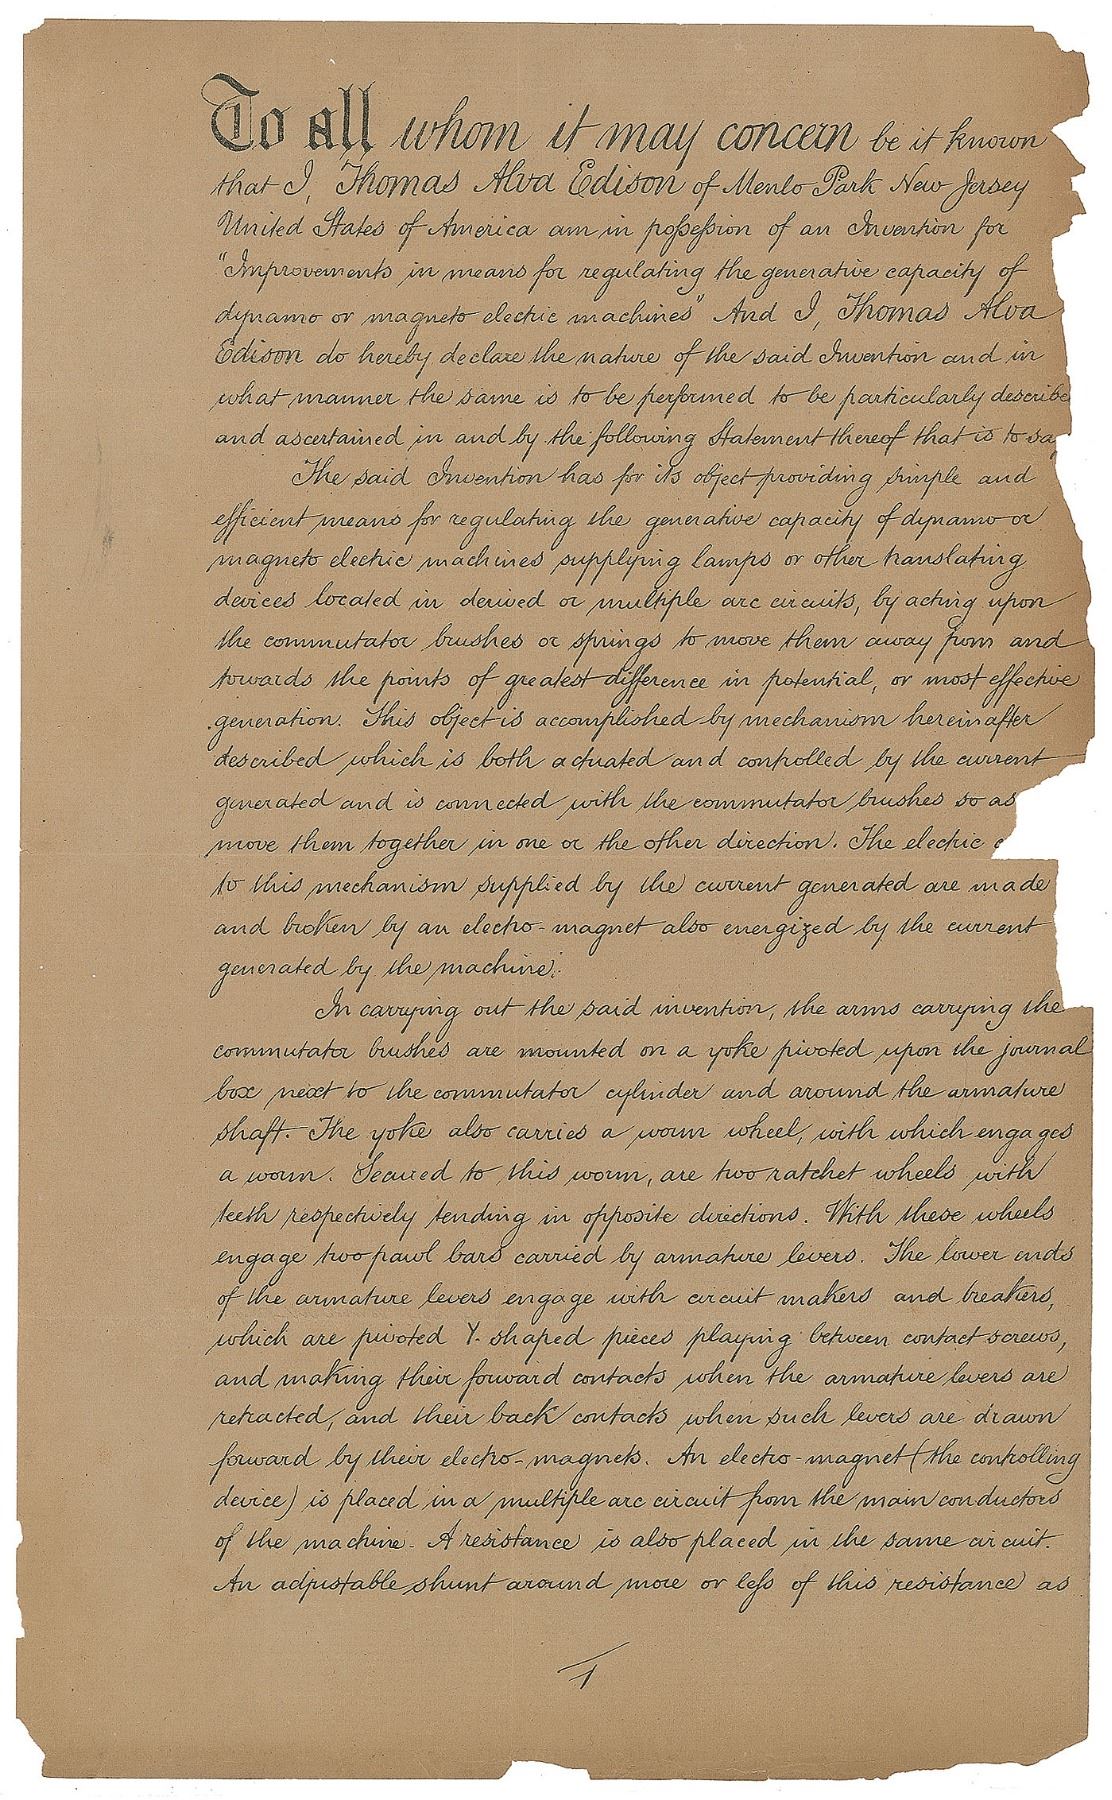 To all whom it may concern be it known
that I, Thomas Alva Edison of Menlo Park New Jersey
United States of America am in possession of an Invention for
"Improvements in means for regulating the generative capacity of
dynamo or magneto electric machines" And I, Thomas Alva
Edison do hereby declare the nature of the said Invention and in
what manner the same is to be performed to be particularly describe
and ascertained in and by the following Statement thereof that is to sa
The said Invention has for its object providing simple and
efficient means for regulating the generative capacity of dynamo or
magneto electric machines supplying lamps or other translating
devices located in derived or multiple arc circuits, by acting upon
the commutator brushes or springs to move them away from and
towards the points of greatest difference in potential, or most effective
generation. This object is accomplished by mechanism hereinafter
described which is both actuated and controlled by the current
generated and is connected with the commutator brushes so as
move them together in one or the other direction. The electric
to this mechanism supplied by the current generated are made
and broken by an electro-magnet also energized by the current
generated by the machine.
In carrying out the said invention, the arms carrying the
commutator brushes are mounted on a yoke pivoted upon the journal
box next to the commutator cylinder and around the armature
shaft. The yoke also carries a worm wheel, with which engages
a worm. Secured to this worm, are two ratchet wheels with
teeth respectively tending in opposite directions. With these wheels
engage two pawl bars carried by armature levers. The lower ends
of the armature levers engage with circuit makers and breakers,
which are pivoted Y-shaped pieces playing between contact screws,
and making their forward contacts when the armature levers are
retracted, and their back contacts when such levers are drawn
forward by their electro-magnets. An electro-magnet (the controlling
device) is placed in a multiple arc circuit from the main conductors
of the machine. A resistance is also placed in the same circuit.
An adjustable shunt around more or less of this resistance as
1